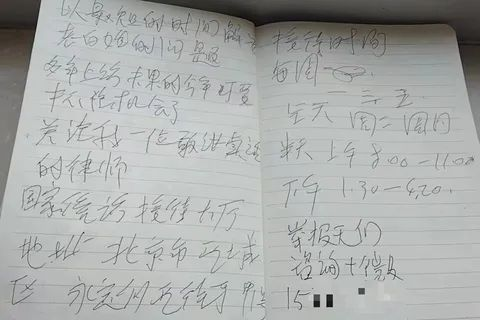 以最短的时间解
老百姓的问题
多年上访未果的今年可要
抓住机会了
关注我一位敢讲真话
的律师
国家信访接待大厅
地址 北京市西城
区 永定门西街甲1号
接待时间
每周
一 三 五
全天 周二 周四
半天 上午 8:00-11:00
下午 1.30-4.20.
举报
咨询+微
15